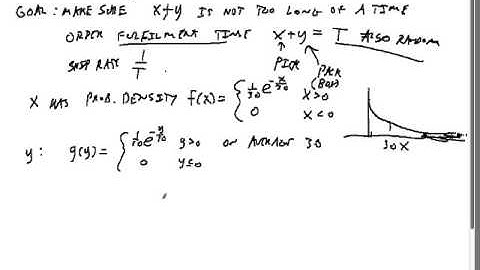 GOAL: MAKE SURE X+Y IS NOT TOO LONG OF A TIME
ORDER FULFILLMENT TIME X+Y = T ALSO RANDOM
SHIP RATE 1/T. PICK PACK (BOX)
X HAS PROB. DENSITY f(x) = { 1/30 e^{-x/30} X>0
0 X<0
30 X
y: g(y) = { 1/30 e^{-y/30} y>0 ON AVERAGE 30
0 y≤0